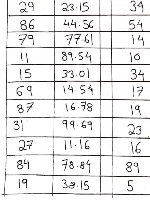 29 23.15 34
86 44.56 54
79 77.61 14
11 89.54 10
15 33.01 34
69 14.54 17
87 16.78 19
31 99.69 23
27 11.16 16
84 78.84 89
19 39.15 5